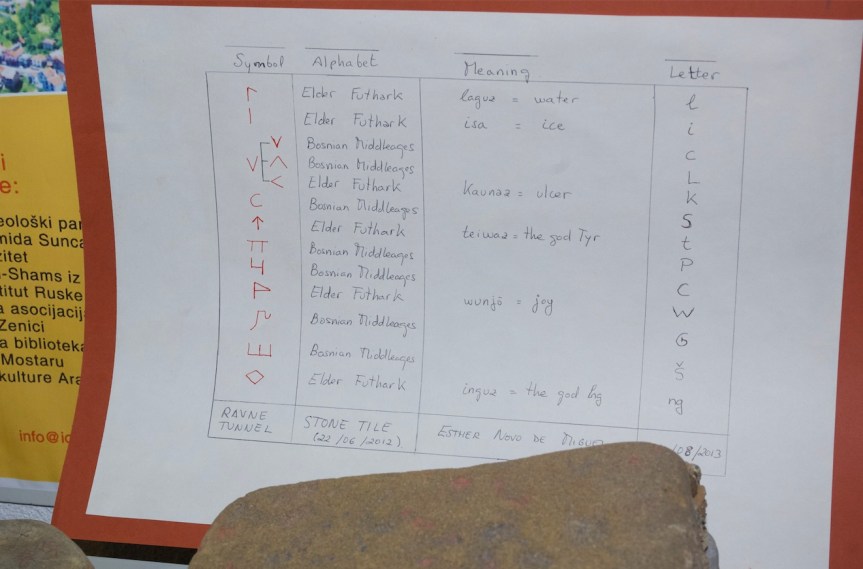 Symbol Alphabet Meaning Letter
ᛚ Elder Futhark laguz = water l
ᛁ Elder Futhark isa = ice i
V Bosnian Middleages C
V Λ Bosnian Middleages L
< Elder Futhark Kaunaz = ulcer K
C Bosnian Middleages S
↑ Elder Futhark teiwaz = the god Tyr t
П Bosnian Middleages P
Ч Bosnian Middleages C
ᚹ Elder Futhark wunjō = joy W
Bosnian Middleages G
Ш Bosnian Middleages Š
◇ Elder Futhark inguz = the god Ing ng
RAVNE TUNNEL
STONE TILE
(22/06/2012)
ESTHER NOVO DE
/08/2013
i
e:
eološki par
mida Sunca
zitet
-Shams iz
titut Ruske
a asocijacij
Zenici
a biblioteka
Mostaru
kulture Ara
info@ic